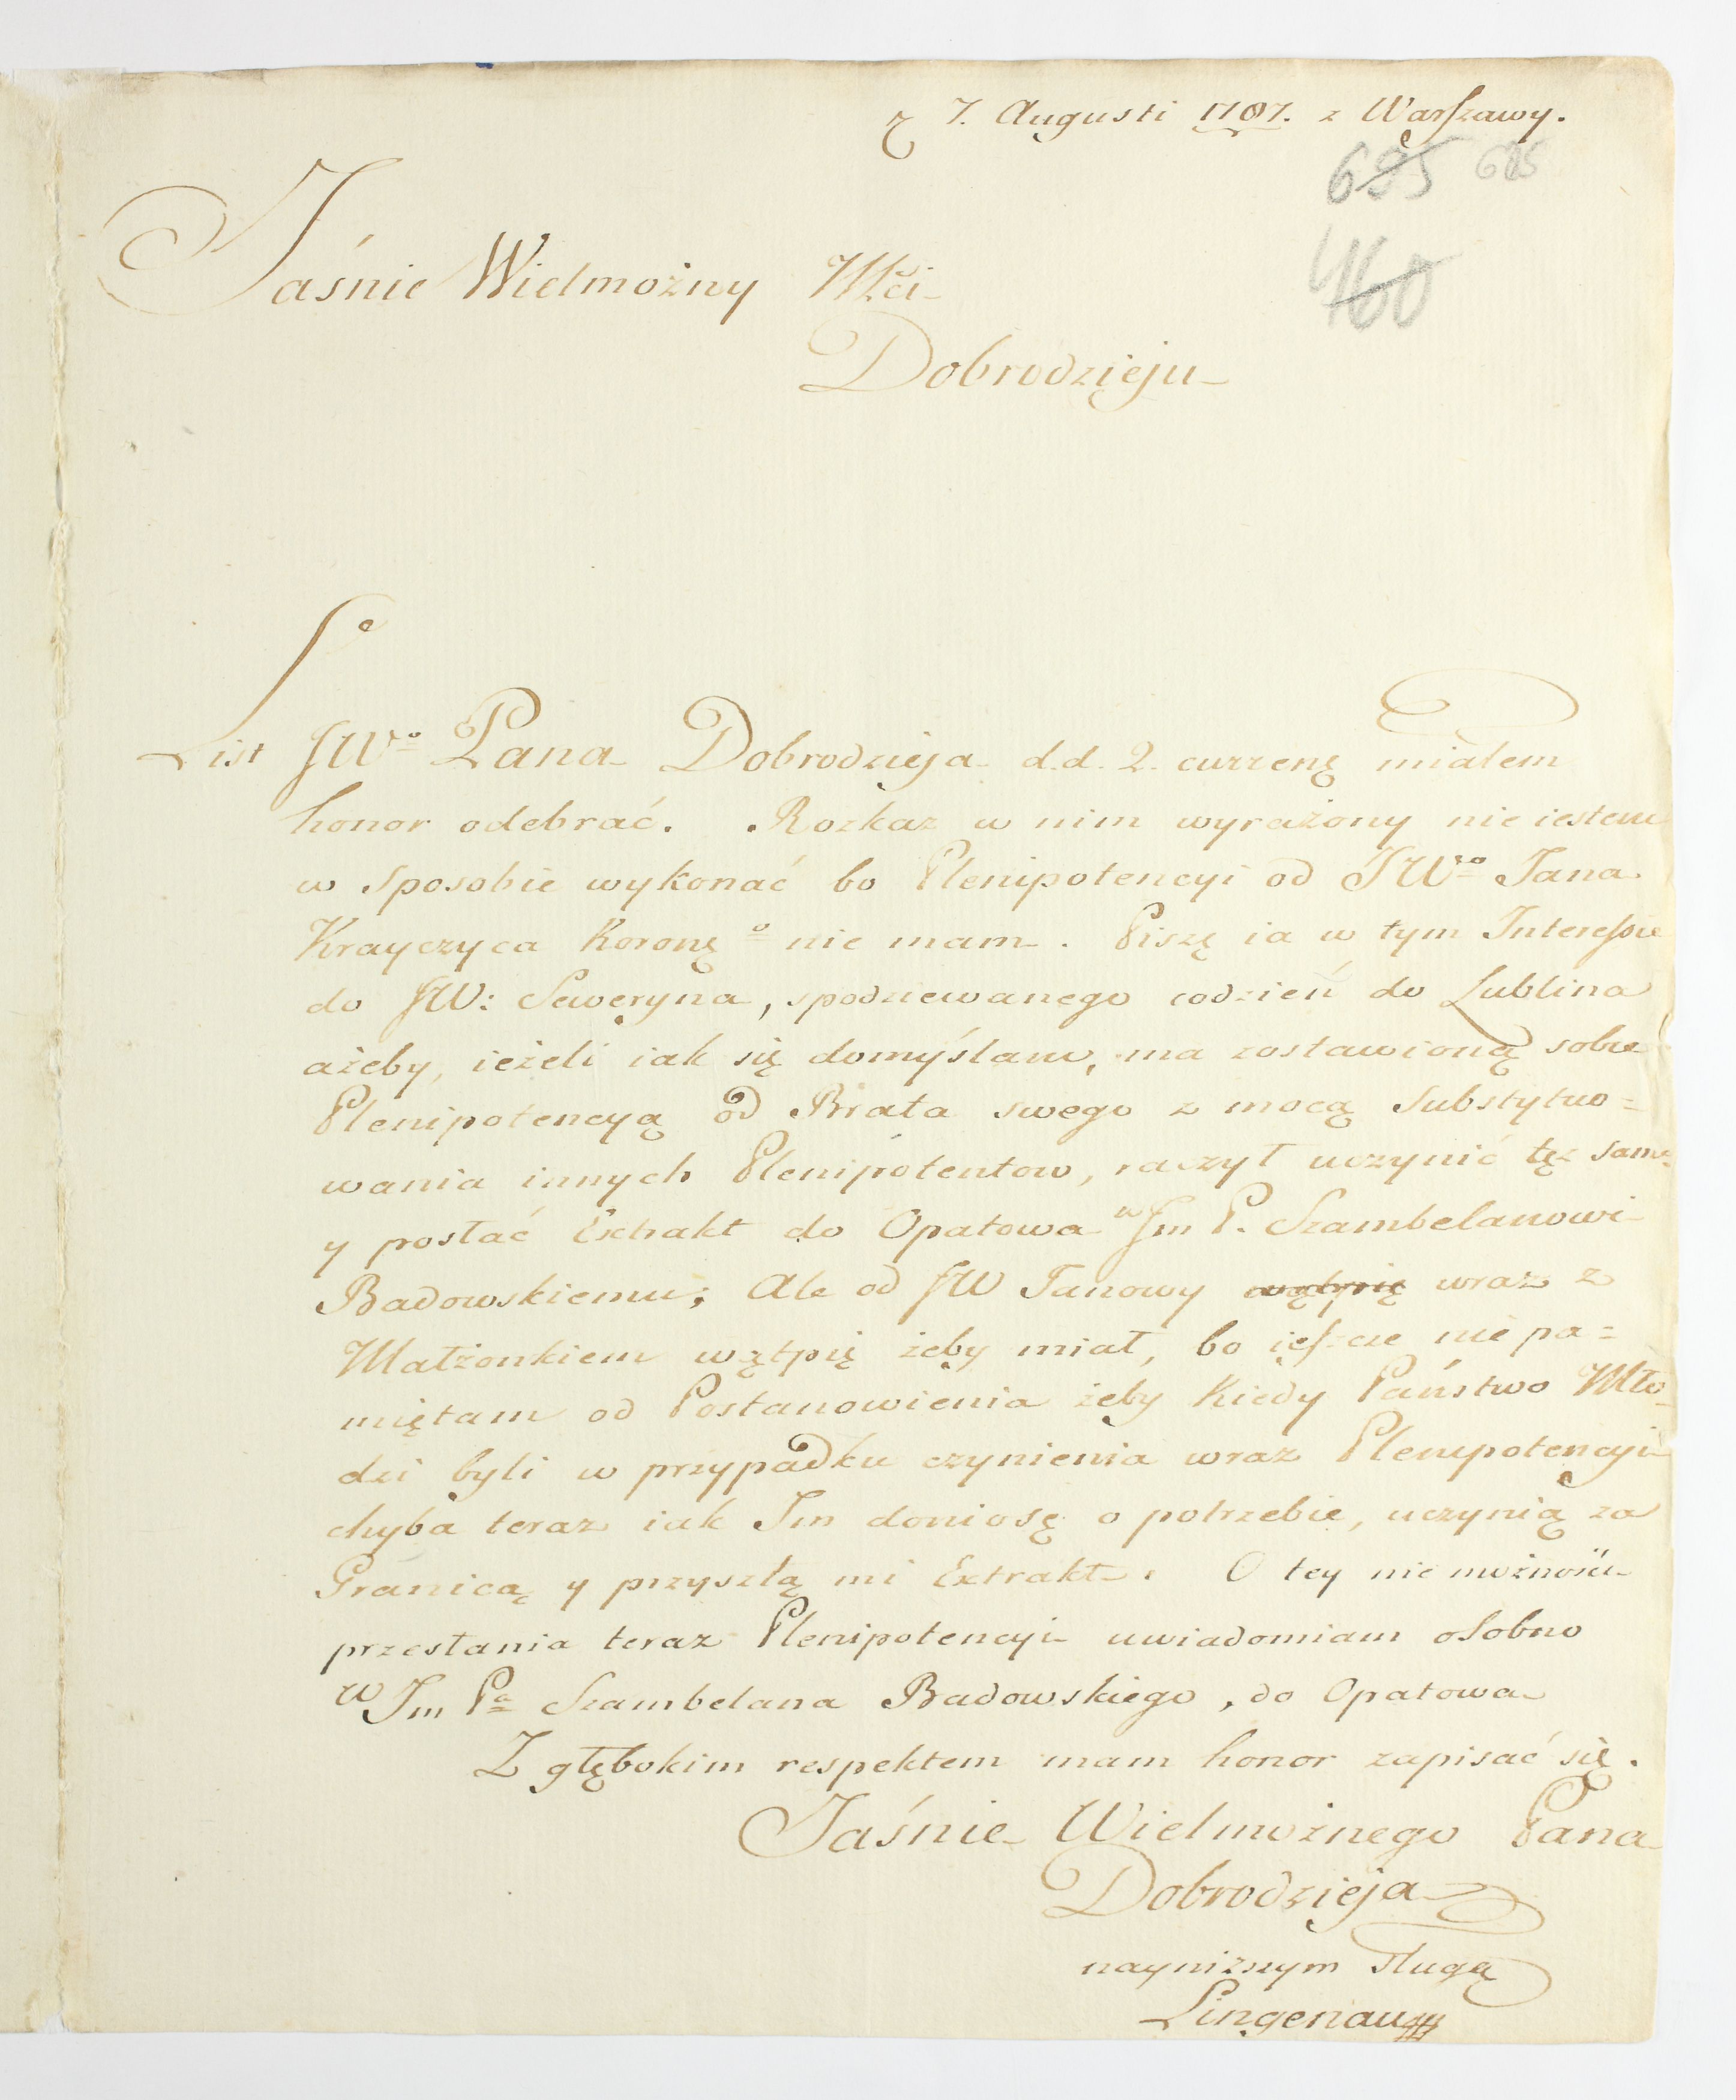 d 7. Augusti 1787. z Warszawy.
695 685
460
Jaśnie Wielmożny Mści
Dobrodzieju
List JWo Pana Dobrodzieja d.d. 2. currenę miałem
honor odebrać. Rozkaz w nim wyrażony nie iestem
w sposobie wykonać bo Plenipotencyi od JWo Jana
Krayczyca Koronęo nie mam. Piszę ia w tym Interessie
do JW: Seweryna, spodziewanego codzień do Lublina
ażeby, ieżeli iak się domyślam, ma zostawioną sobie
Plenipotencyą od Brata swego z mocą Substytuo=
wania innych Plenipotentow, raczył uczynić tęż samę
y posłać Extrakt do Opatowa WJm P. Szambelanowi
Badowskiemu; Ale od JW Janowy wątpię wraz z
Małżonkiem wątpię żeby miał, bo ieszcze nie pa=
miętam od Postanowienia żeby Kiedy Państwo Mło
dzi byli w przypadku czynienia wraz Plenipotencyi
chyba teraz iak Im doniosę o potrzebie, uczynią za
Granicą y przyszłą mi Extrakt. O tey nie możności
przesłania teraz Plenipotencyi uwiadomiam osobno
W Jm Pa Szambelana Badowskiego, do Opatowa
Z głębokim respektem mam honor zapisać się.
Jaśnie Wielmożnego Pana
Dobrodzieja
nayniższym sługą
Lingenau